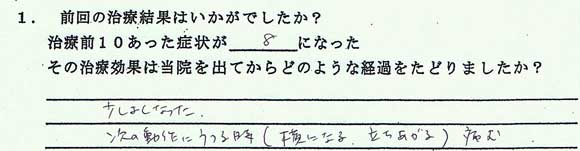 1. 前回の治療結果はいかがでしたか?
治療前10あった症状が 8 になった
その治療効果は当院を出てからどのような経過をたどりましたか?
少しよくなった.
次の動作にうつる時(横になる、立ちあがる)痛む